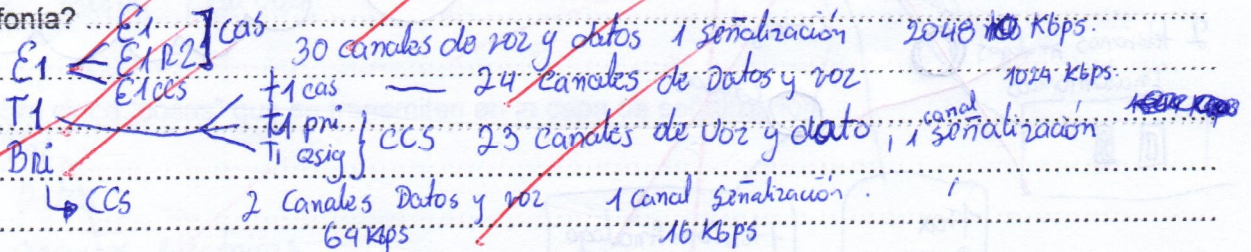 fonía?
E1 E1 ] cas 30 canales de voz y datos 1 señalización 2048 Kbps.
E1R2
E1ccs
T1 t1 cas — 24 canales de Datos y voz 1024 Kbps.
t1 pri } CCS 23 canales de voz y dato, 1 canal señalización
T1 Qsig
Bri
↳ CCS 2 Canales Datos y voz 1 canal señalización.
64 Kbps 16 Kbps